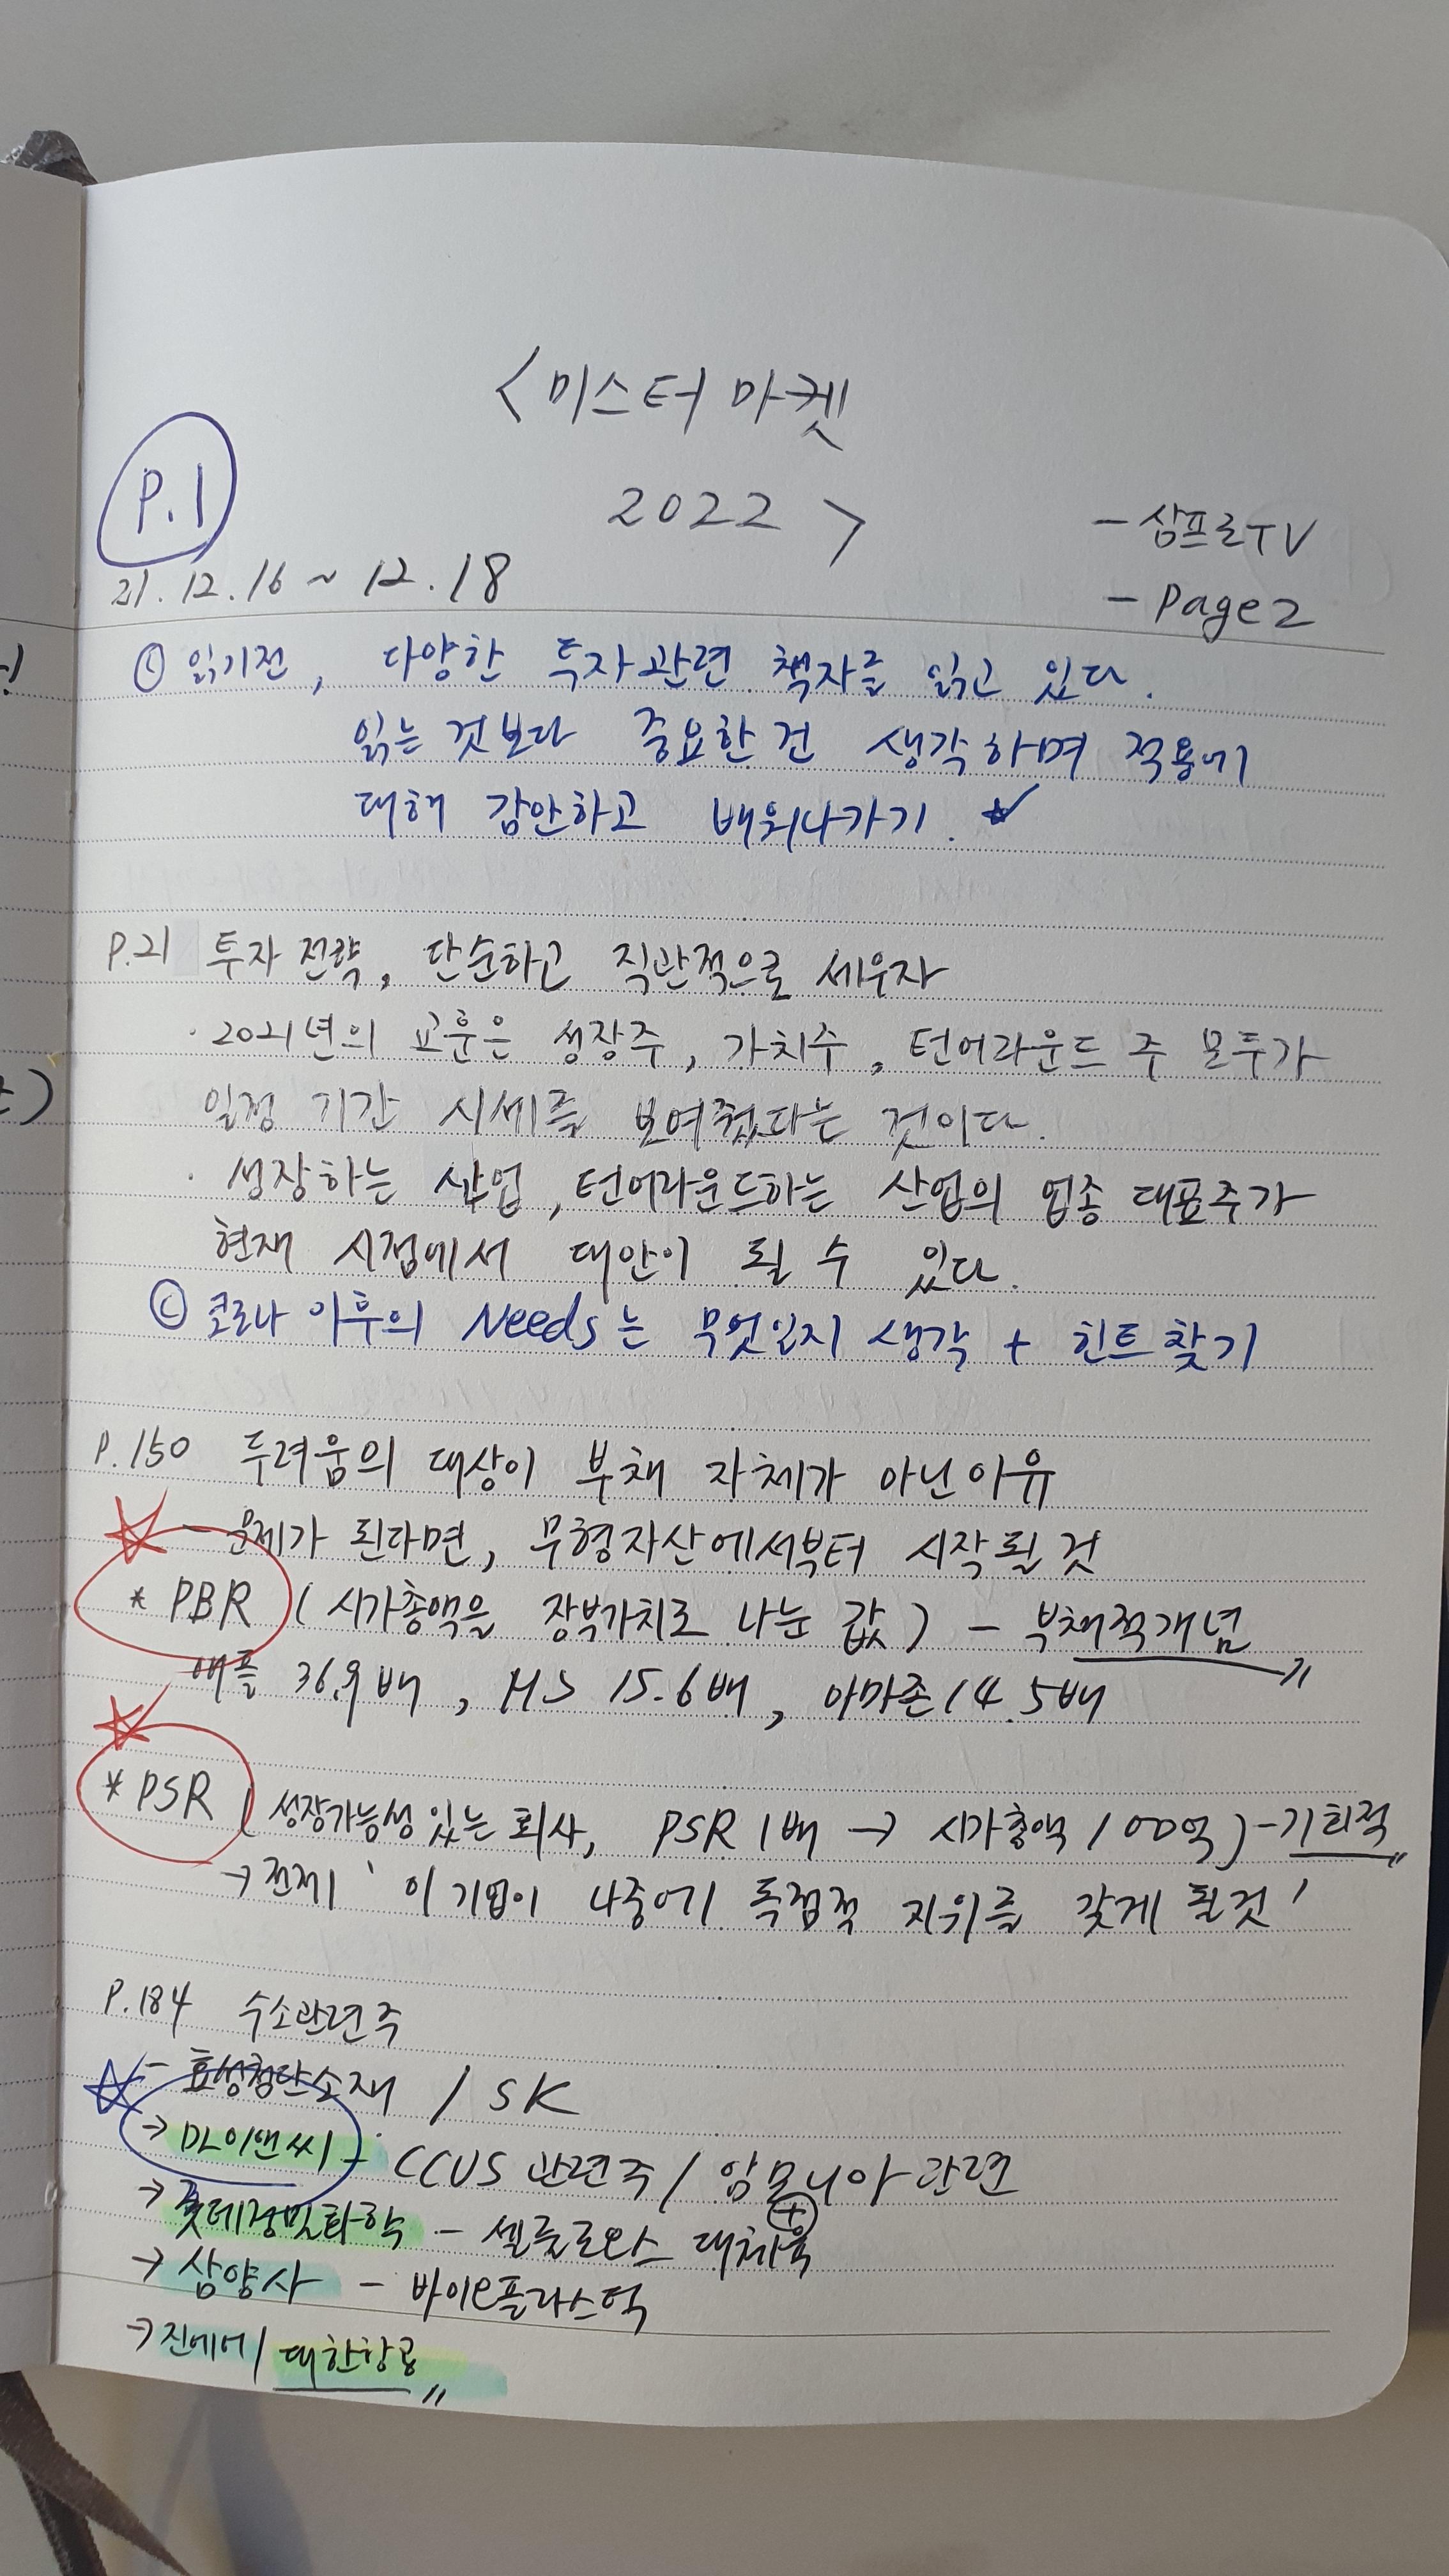 <미스터 마켓
P.1
2022>
- 삼프로TV
21.12.16 ~ 12.18
- Page2
ⓒ 읽기전, 다양한 투자관련 책자를 읽고 있다.
읽는 것보다 중요한 건 생각하며 적용에
대해 감안하고 배워나가기.
P.21 투자 전략, 단순하고 직관적으로 세우자
· 2021년의 교훈은 성장주, 가치주, 턴어라운드 주 모두가
일정 기간 시세를 보여줬다는 것이다.
· 성장하는 산업, 턴어라운드하는 산업의 업종 대표주가
현재 시점에서 대안이 될 수 있다.
ⓒ 코로나 이후의 Needs는 무엇인지 생각 + 힌트찾기
P.150 두려움의 대상이 부채 자체가 아닌 이유
- 문제가 된다면, 무형자산에서부터 시작될 것
* PBR (시가총액을 장부가치로 나눈 값) - 부채적개념
애플 36.9배, MS 15.6배, 아마존 14.5배
* PSR (성장가능성 있는 회사, PSR 1배 → 시가총액 100억) - 기회적
→ 전제 '이 기업이 나중에 독점적 지위를 갖게 될것'
P.184 수소관련주
- 효성첨단소재 / SK
→ DL이앤씨 - CCUS 관련주 / 암모니아 관련
→ 롯데정밀화학 - 셀룰로오스 대체육
→ 삼양사 - 바이오플라스틱
→ 진에어 / 대한항공